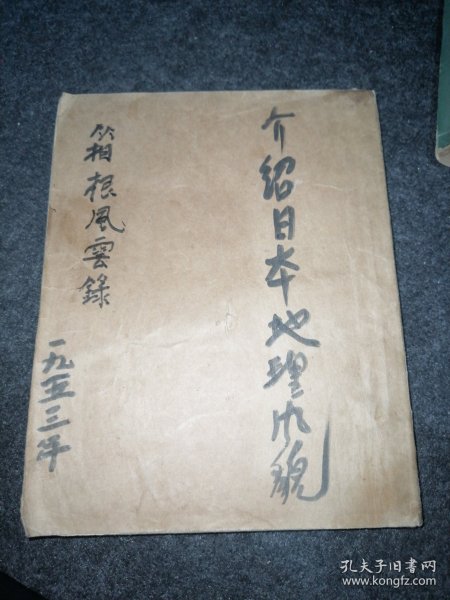 介绍日本地理风貌
箱根風雲錄
一九五三年
孔夫子旧书网
www.kongfz.com